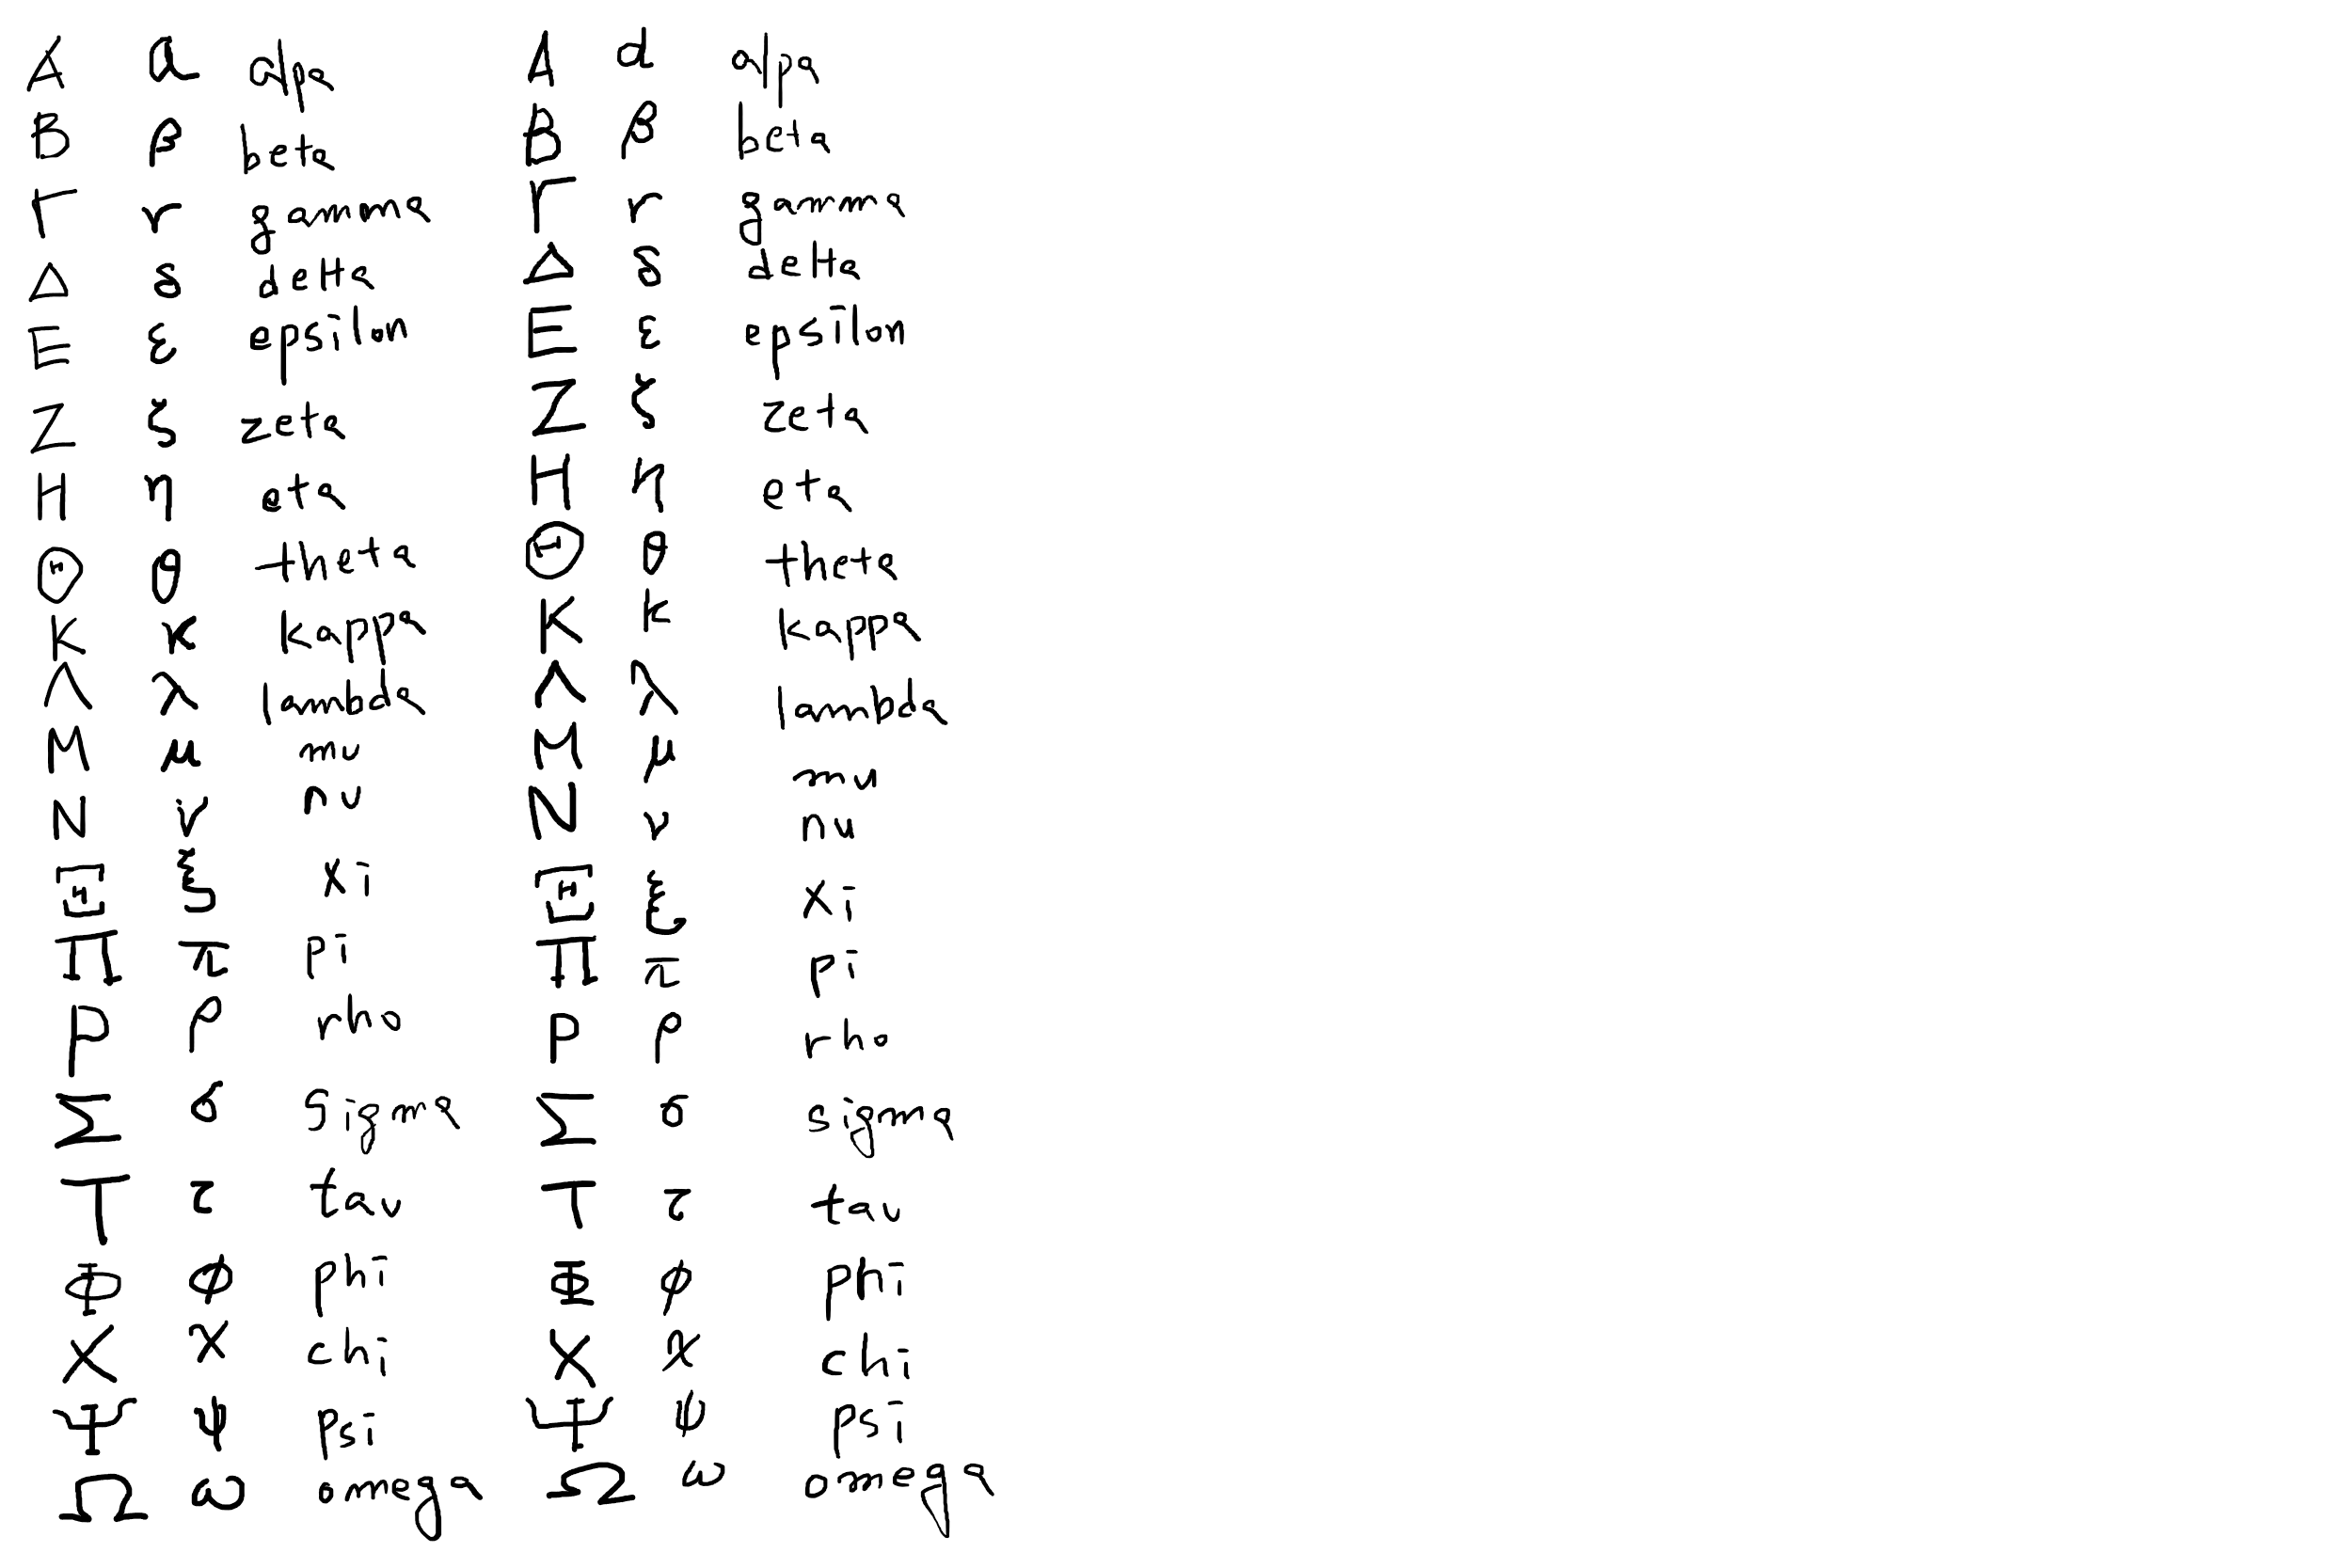 Α α alpa Α α alpa
Β β beta Β β beta
Γ γ gamma Γ γ gamma
Δ δ delta Δ δ delta
Ε ε epsilon Ε ε epsilon
Ζ ζ zeta Ζ ζ zeta
Η η eta Η η eta
Θ θ theta Θ θ theta
Κ κ kappa Κ κ kappa
Λ λ lambda Λ λ lambda
Μ μ mu Μ μ mu
Ν ν nu Ν ν nu
Ξ ξ xi Ξ ξ xi
Π π pi Π π pi
Ρ ρ rho Ρ ρ rho
Σ σ sigma Σ σ sigma
Τ τ tau Τ τ tau
Φ φ phi Φ φ phi
Χ χ chi Χ χ chi
Ψ ψ psi Ψ ψ psi
Ω ω omega Ω ω omega